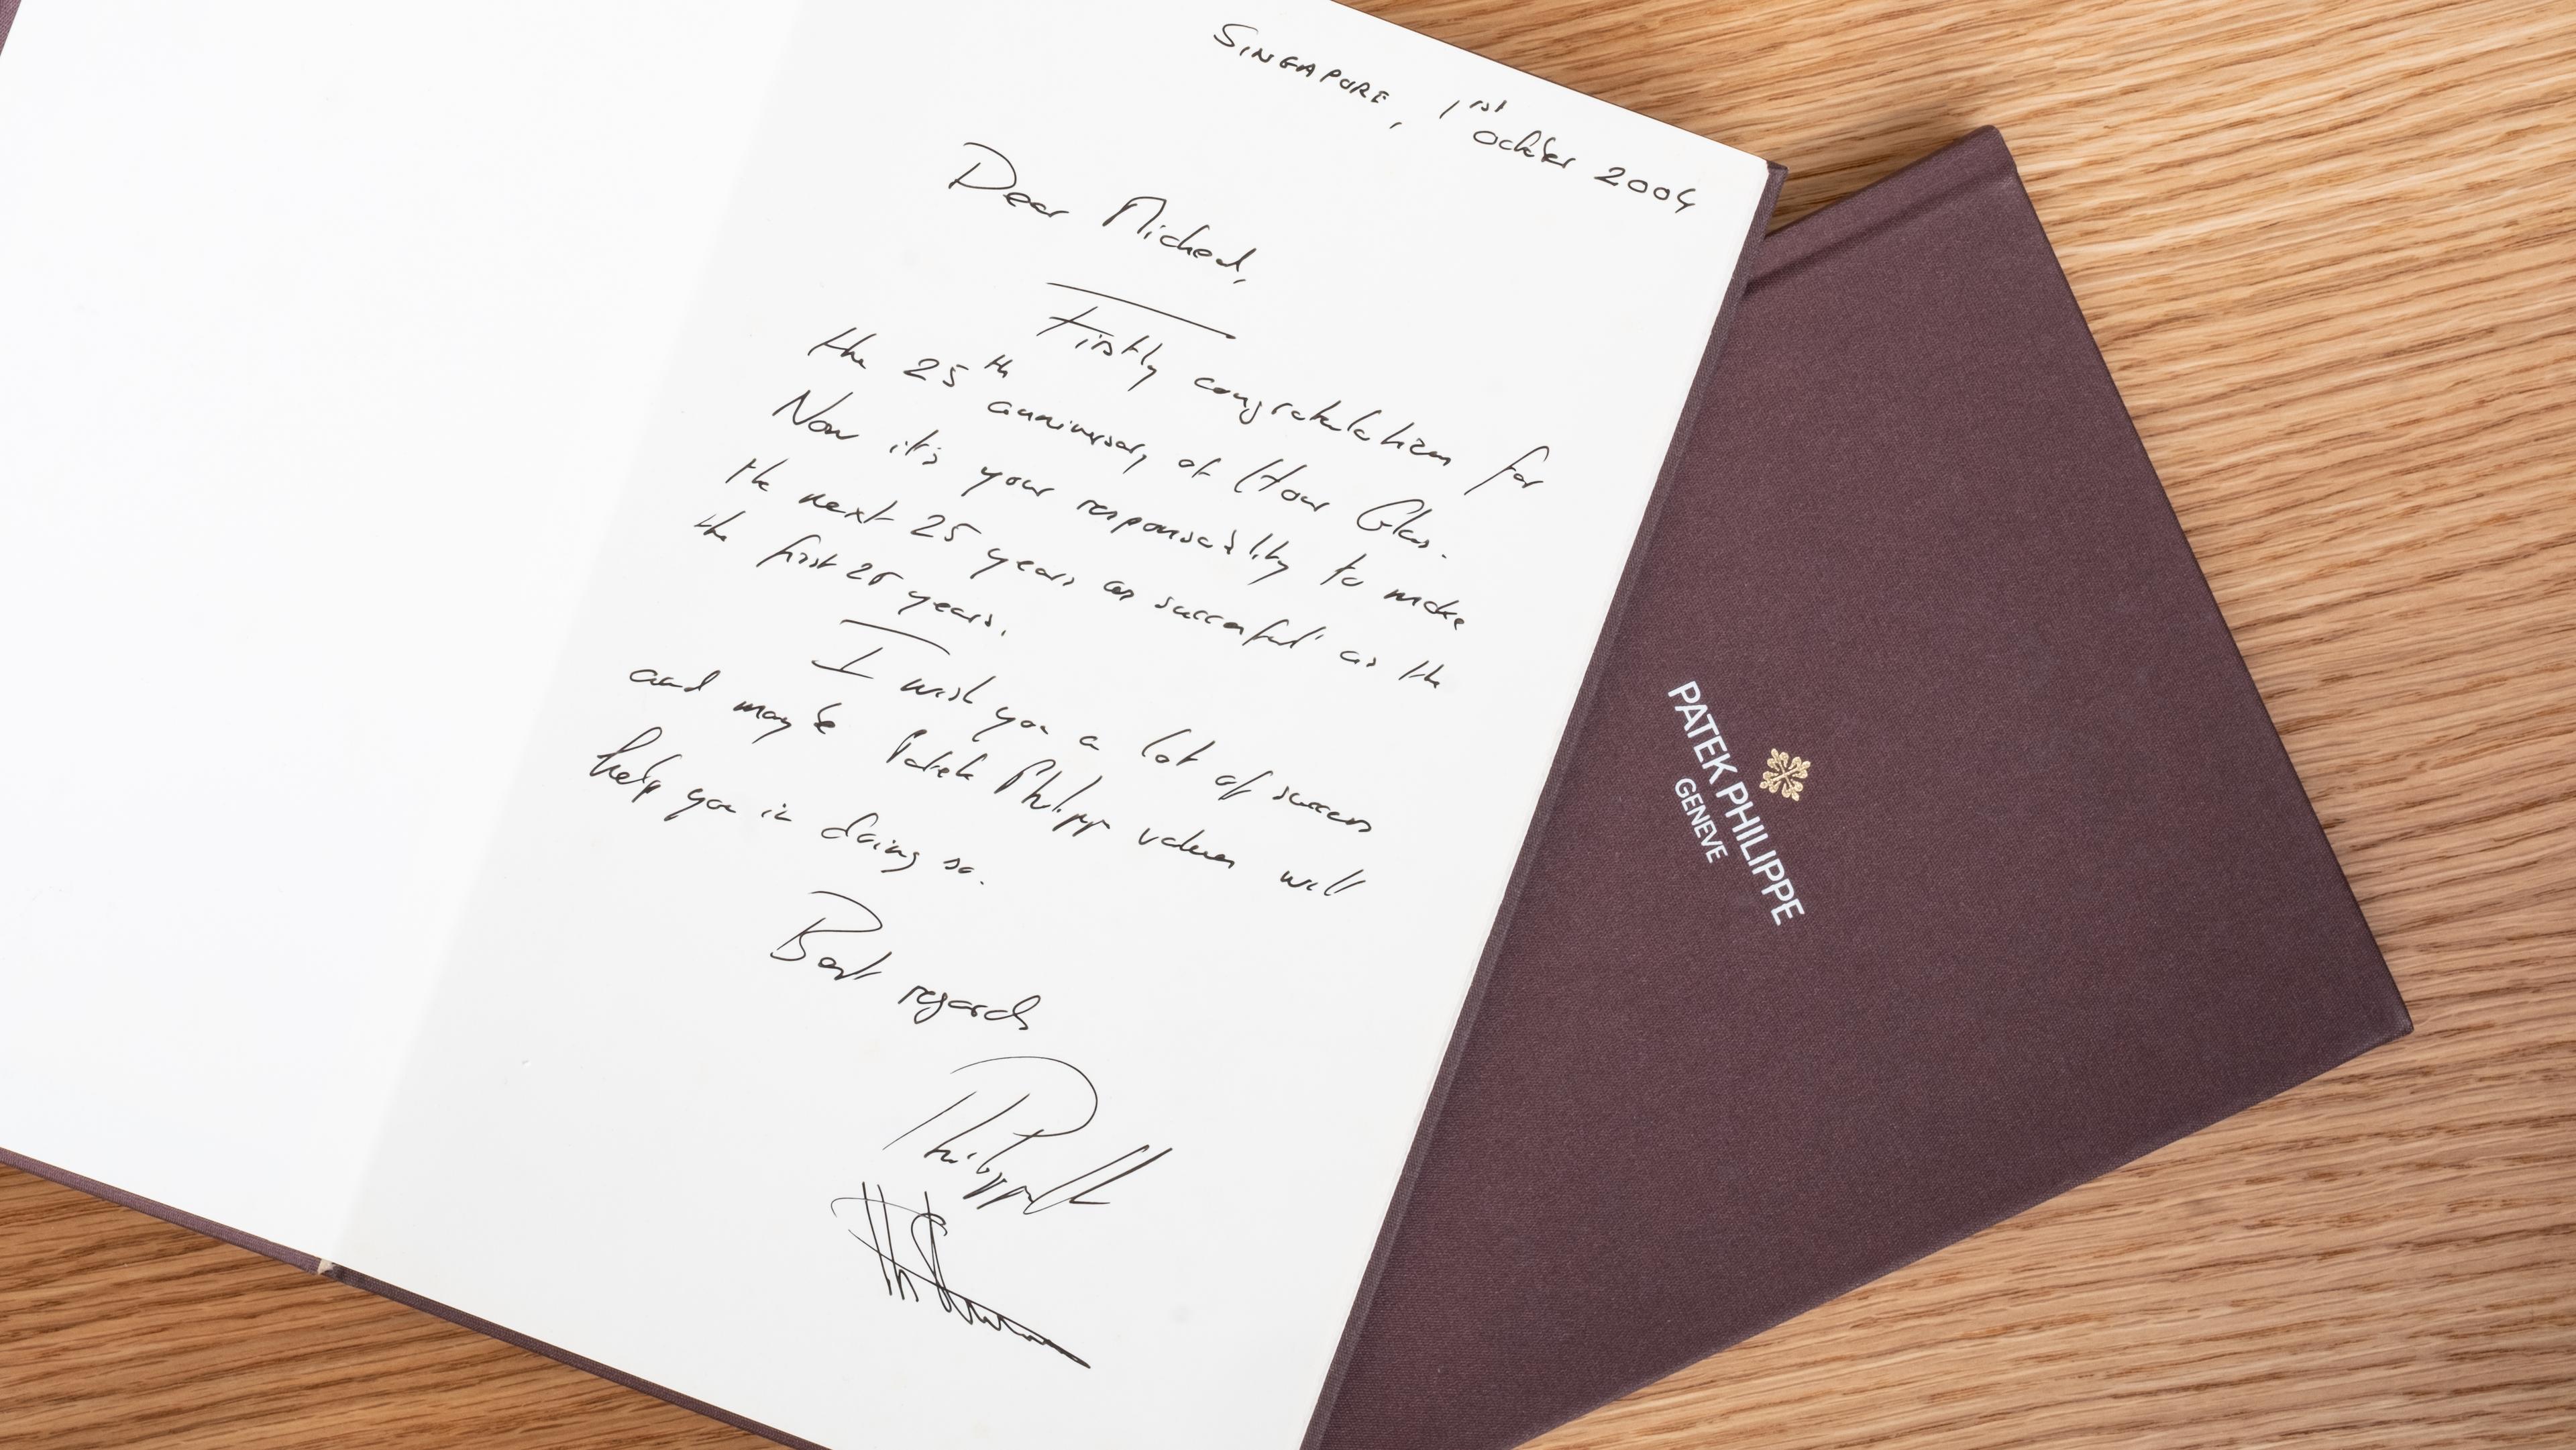 SINGAPORE, 1rst October 2004
Dear Michael,
Firstly congratulations for
the 25th anniversary of Hour Glass.
Now it's your responsability to make
the next 25 years as successful as the
the first 25 years.
I wish you a lot of success
and maybe Patek Philippe values will
help you in doing so.
Best regards
Philippe
PATEK PHILIPPE
GENEVE